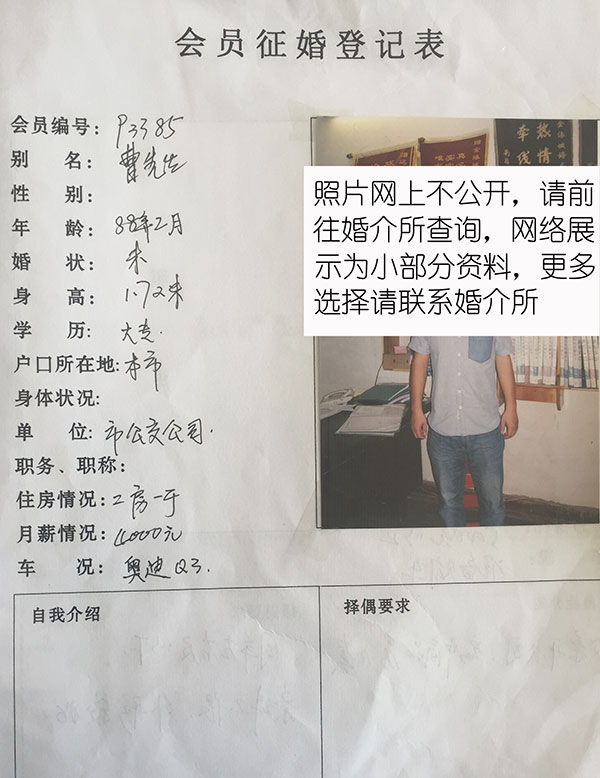 会员征婚登记表
会员编号: P3385
别 名: 曹先生
性 别:
年 龄: 88年2月
婚 状: 未
身 高: 1.72米
学 历: 大专
户口所在地: 本市
身体状况:
单 位: 市公交公司.
职务、职称:
住房情况: 二房一厅
月薪情况: 4000元
车 况: 奥迪Q3.
照片网上不公开，请前
往婚介所查询，网络展
示为小部分资料，更多
选择请联系婚介所
热情
牵线
自我介绍
择偶要求